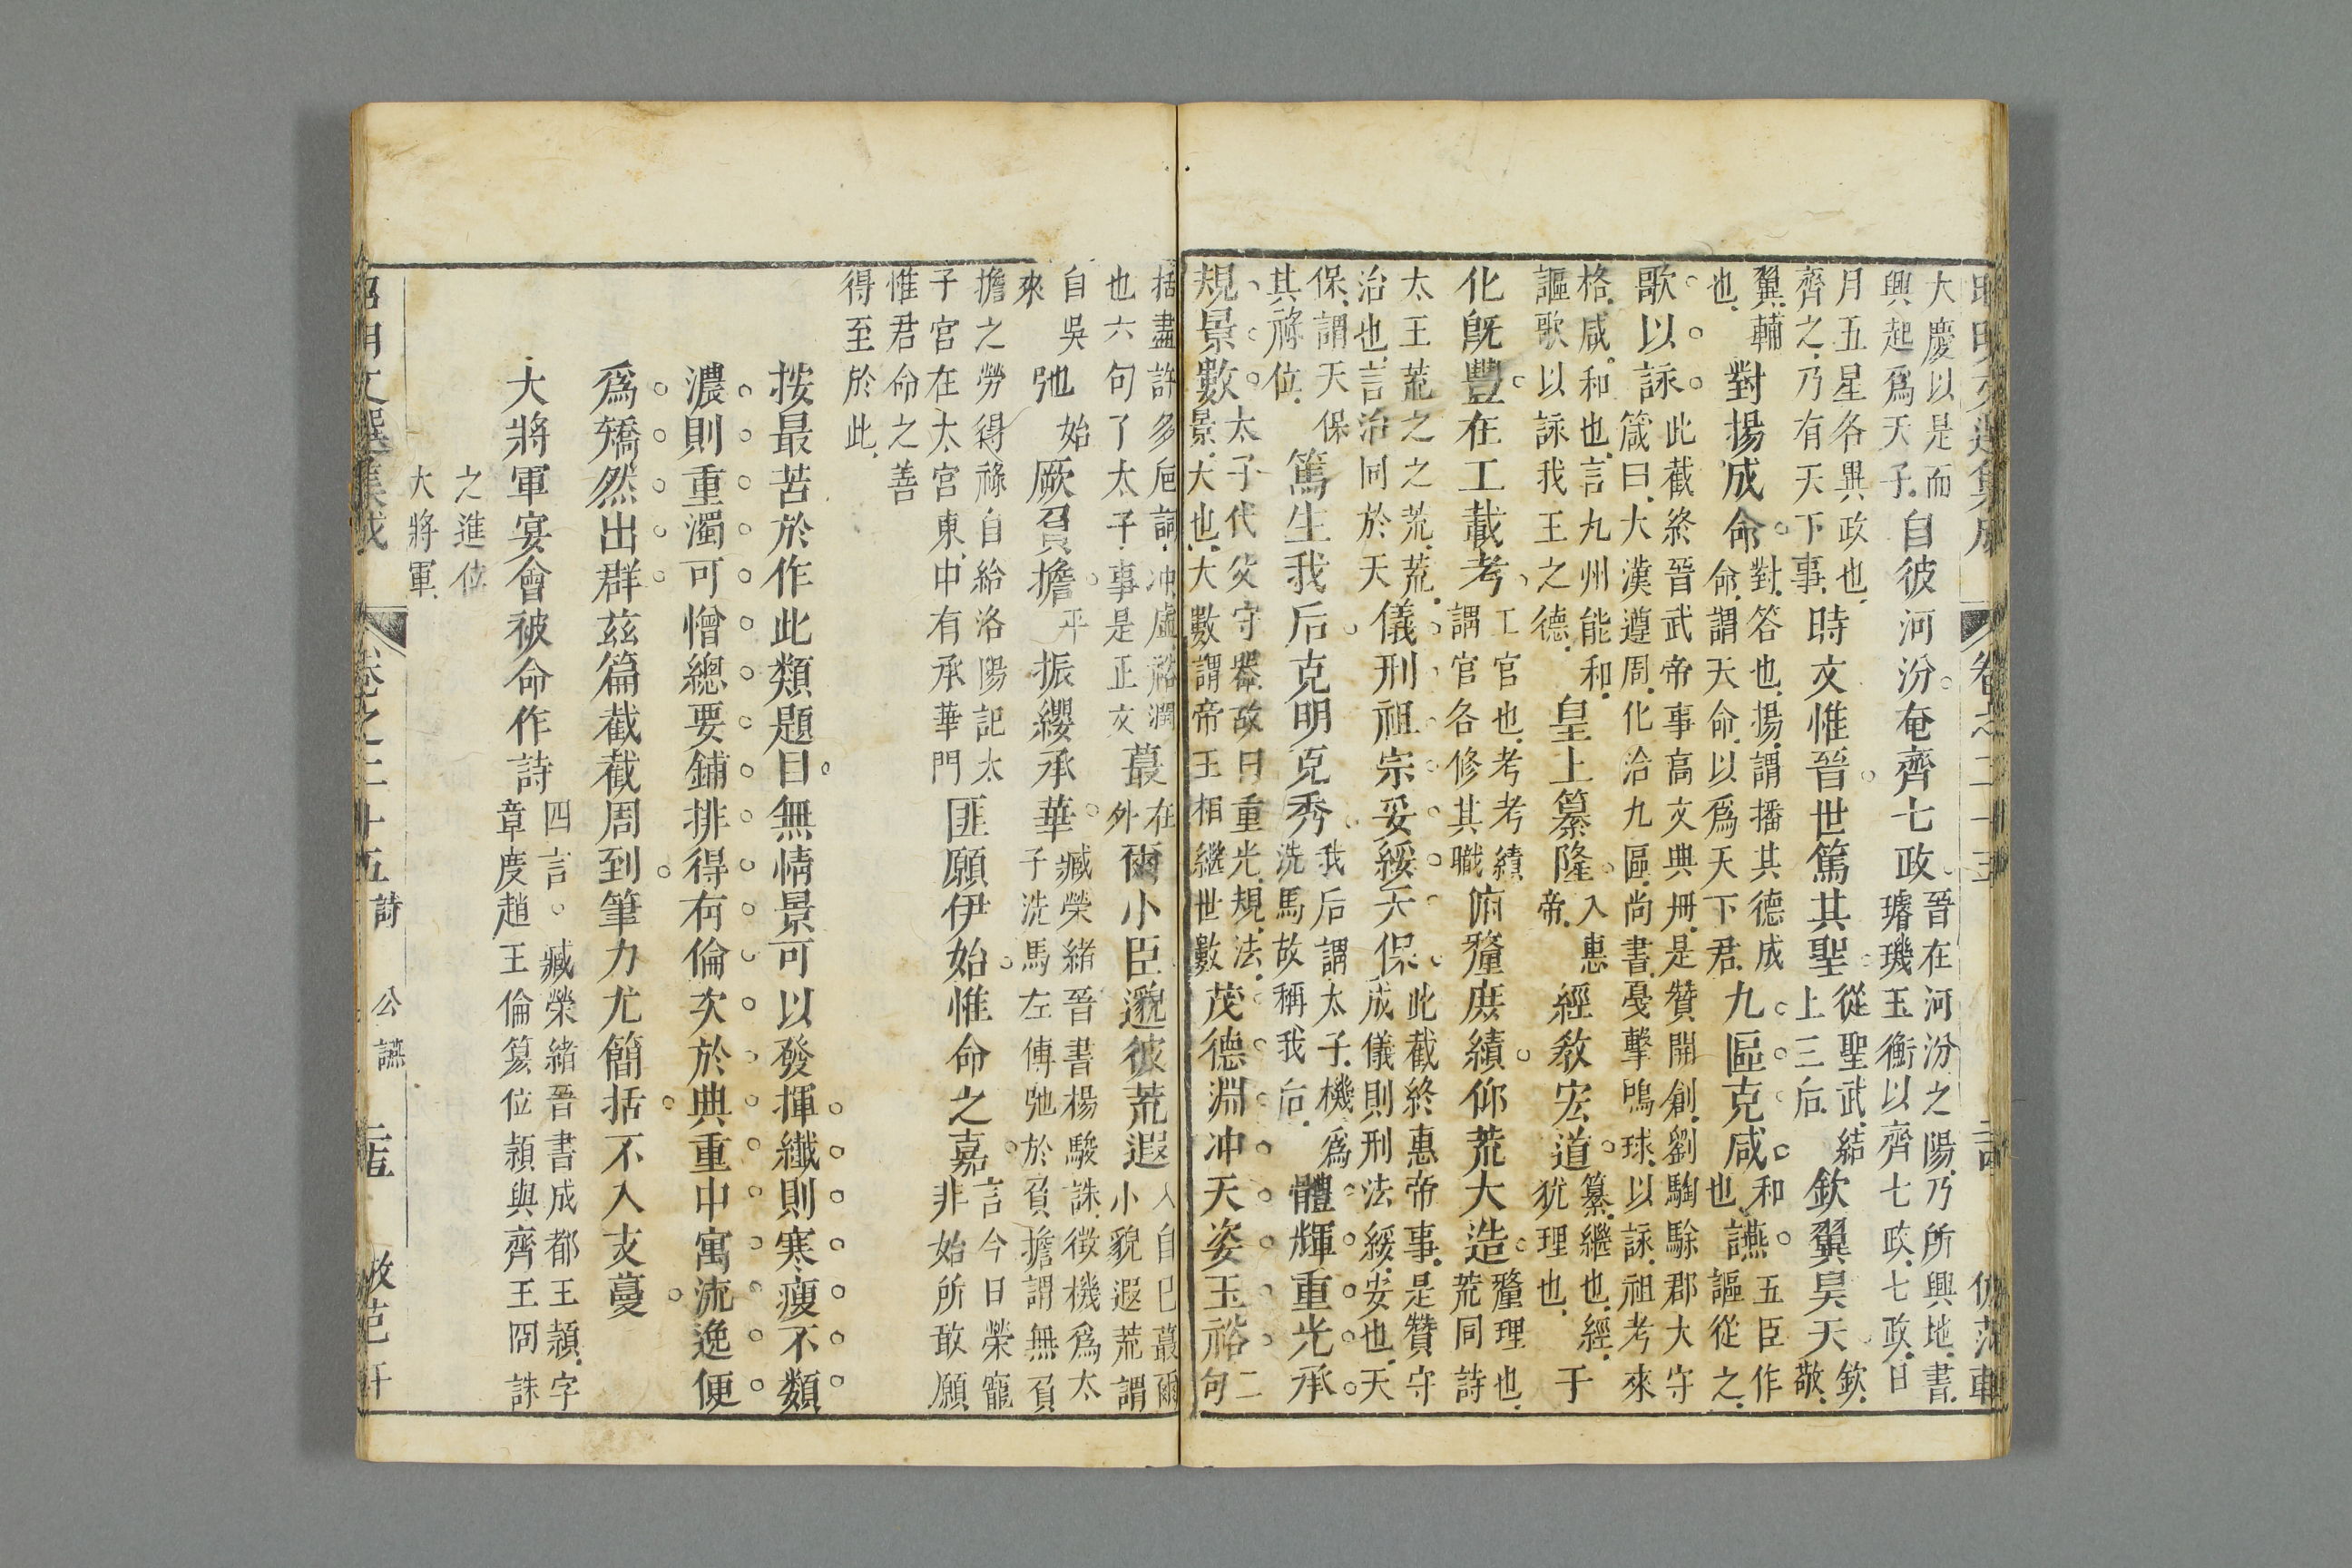 昭明文選集成 卷之二十五 詩 倣范軒
大慶以是而興起爲天子自彼河汾奄齊七政晉在河汾之陽乃所興地書璿璣玉衡以齊七政七政日
月五星各異政也齊之乃有天下事時文惟晉世篤其聖從聖武結上三后欽翼昊天欽敬
翼輔也對揚成命對答也揚謂播其德成命謂天命以爲天下君九區克咸和也讌五臣作謳從之
歌以詠此截終晉武帝事高文典册是贊開創劉騊駼郡大守箴曰大漢遵周化洽九區尚書戛擊鳴球以詠祖考來
格咸和也言九州能和謳歌以詠我王之德皇上纂隆入惠帝經敎宏道纂繼也經猶理也于
化旣豐在工載考工官也考考績謂官各修其職俯釐庶績仰荒大造釐理也荒同詩
太王荒之之荒荒治也言治同於天儀刑祖宗妥綏天保此截終惠帝事是贊守成儀則刑法綏安也天
保謂天保其祿位篤生我后克明克秀我后謂太子機爲洗馬故稱我后體輝重光承
規景數太子代父守器故曰重光規法景大也大數謂帝王相繼世數茂德淵冲天姿玉裕二句
括盡許多詞冲虛裕潤也六句了太子事是正文蕞在外爾小臣邈彼荒遐入自巳蕞爾小貌遐荒謂
自吳來弛始厥負擔平振纓承華臧榮緒晉書楊駿誅徵機爲太子洗馬左傳弛於負擔謂無負
擔之勞得祿自給洛陽記太子宮在太宮東中有承華門匪願伊始惟命之嘉言今日榮寵非始所敢願
惟君命之善得至於此
按最苦於作此類題目無情景可以發揮纖則寒瘦不類
濃則重濁可憎總要鋪排得有倫次於典重中寓流逸便
爲矯然出群茲篇截截周到筆力尤簡括不入支蔓
大將軍宴會被命作詩四言臧榮緒晉書成都王穎字章度趙王倫篡位穎與齊王冏誅
之進位大將軍
昭明文選集成 卷之二十五 詩 公讌 倣范軒